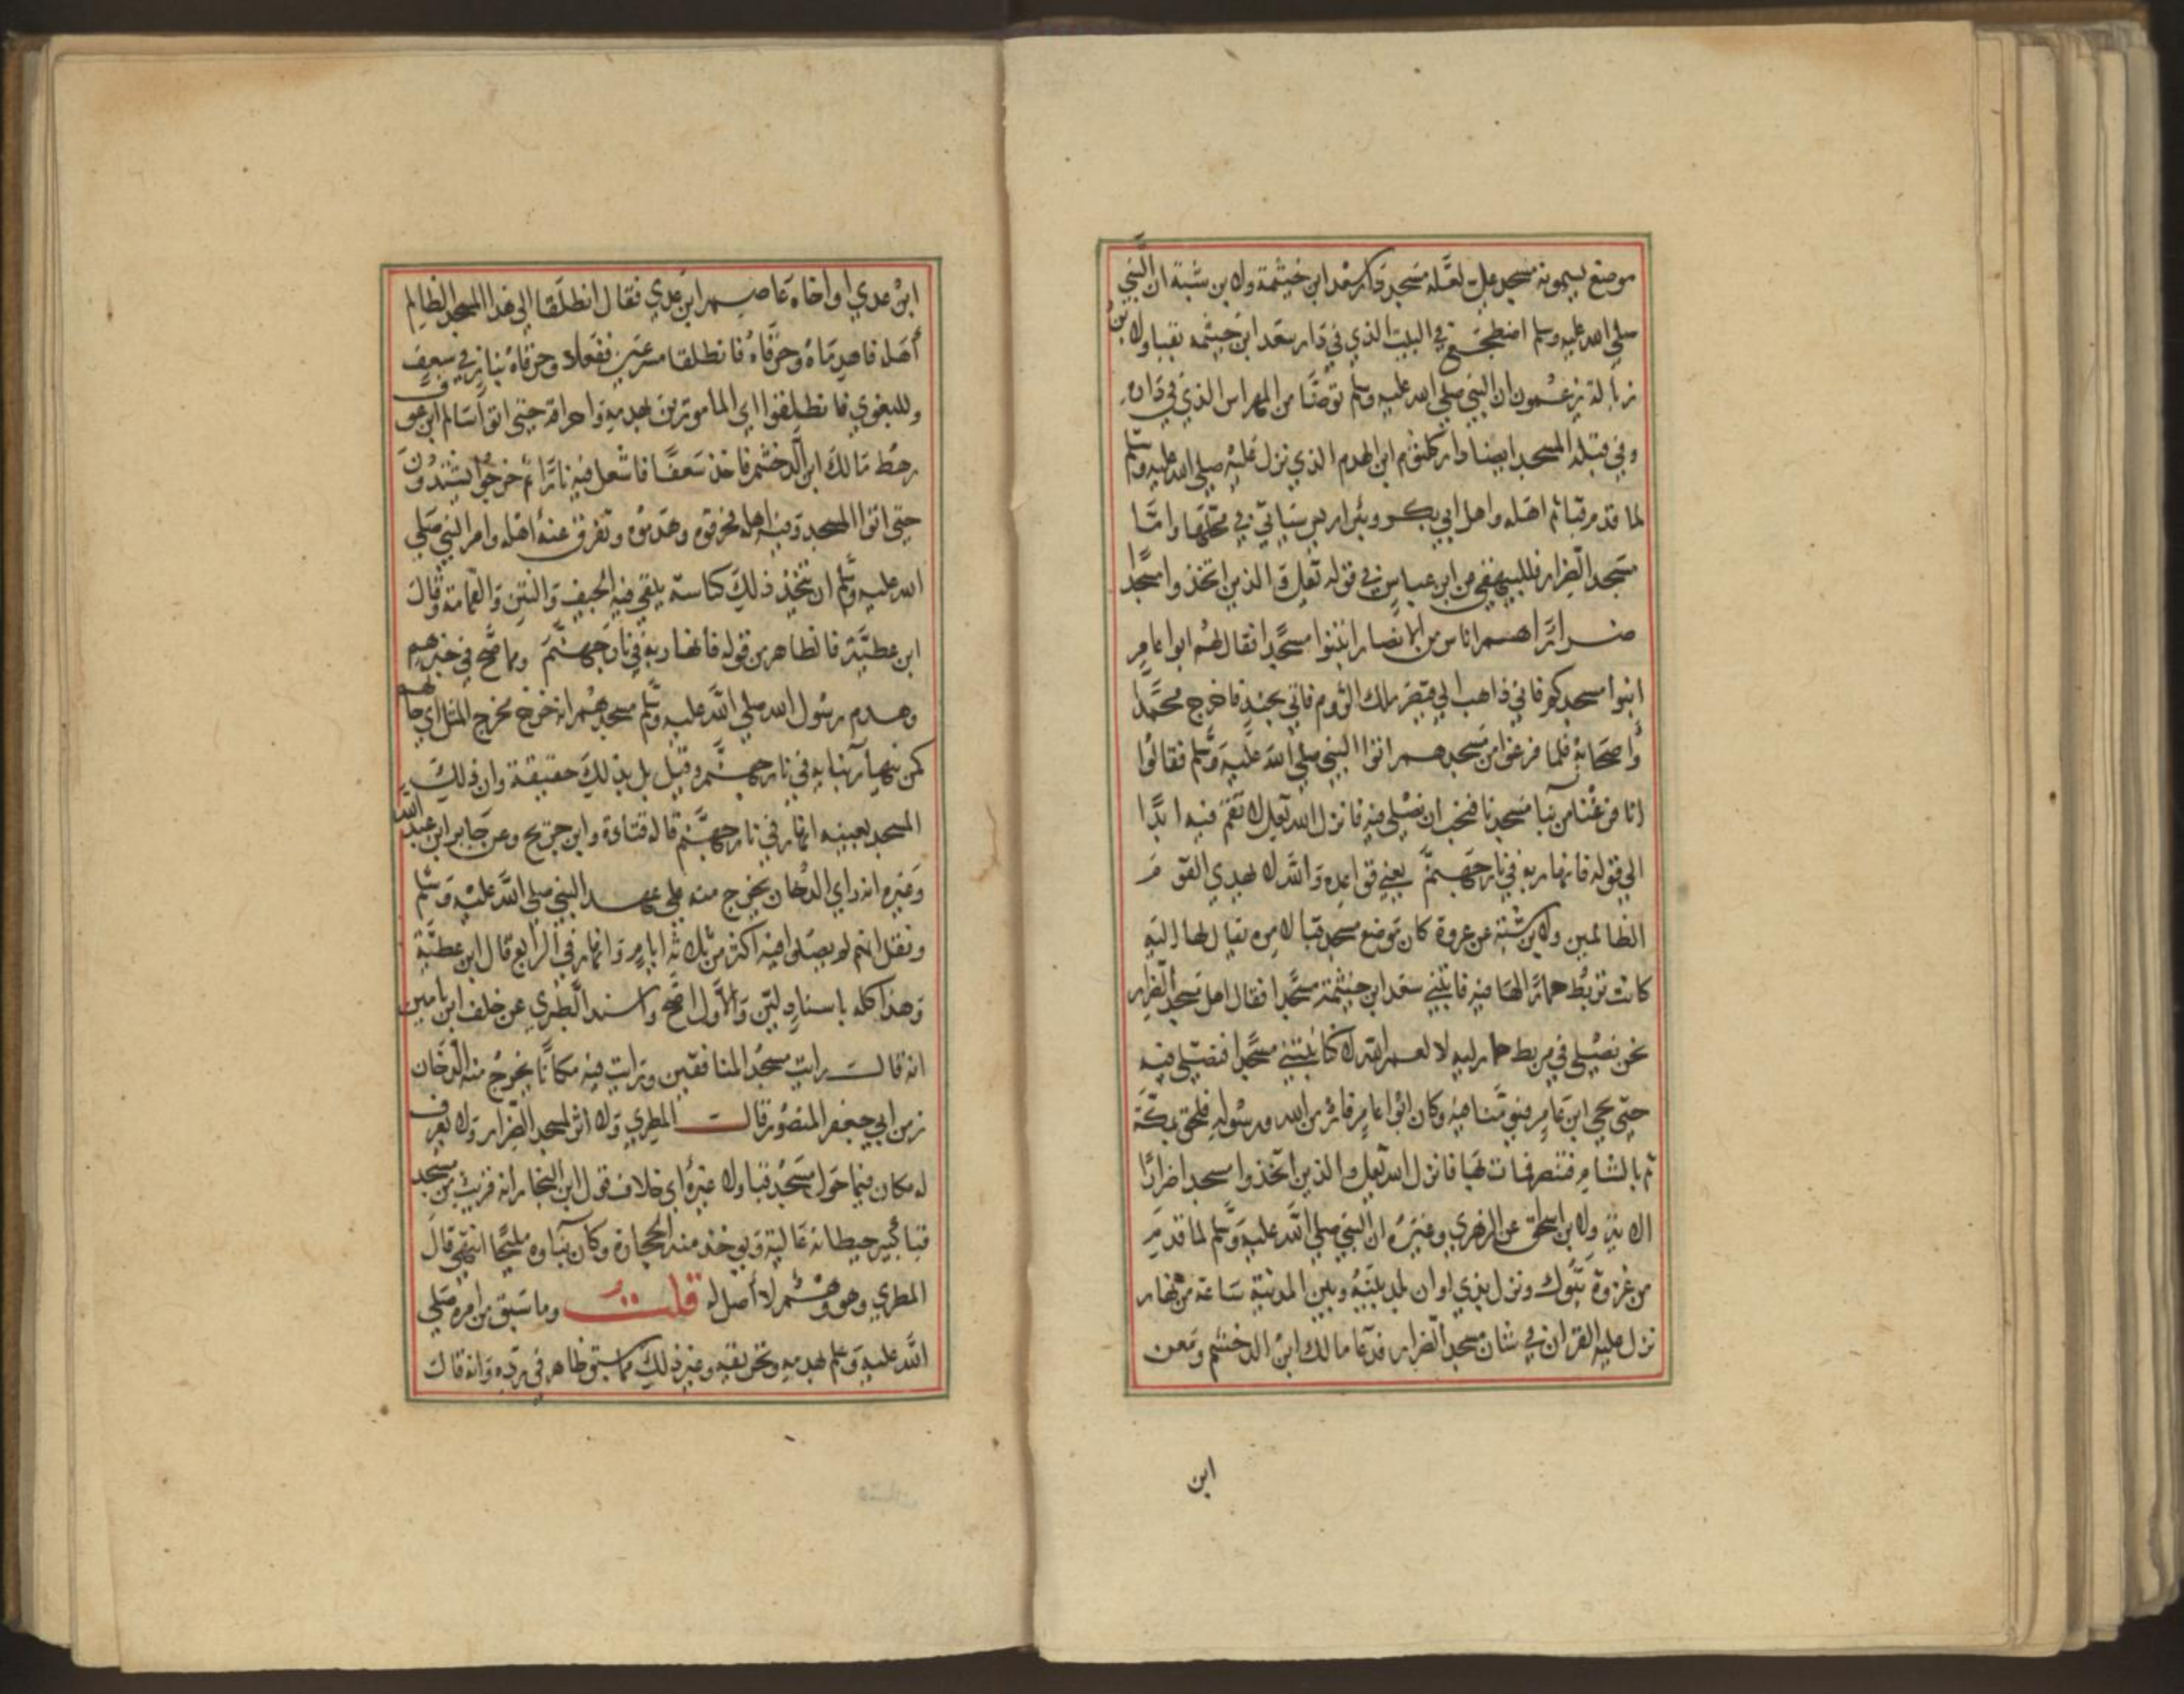 موضع يسمونه مسجد علي لعله مسجد دار سعد ابن خيثمة ولابن شبة ان النبي
صلي الله عليه وسلم اضطجع في البيت الذي في دار سعد ابن خيثمه بقبا ولابن
زبالة يزعمون ان النبي صلي الله عليه وسلم توضا من المهراس الذي في داره
وفي قبلة المسجد ايضا دار كلثوم ابن الهدم الذي نزل عليه صلي الله عليه وسلم
لما قدم قبا ثم اهله واهل ابي بكر وبئر اريس سياتي في محلها واما
مسجد الضرار فللبيهقي عن ابن عباس في قوله تعلي والذين اتخذوا مسجدا
ضرارا هم اناس من الانصار ابتنوا مسجدا فقال لهم ابوا عامر
ابنوا مسجدكم فاني ذاهب الي قيصر ملك الروم فاتي بجند فاخرج محمدا
واصحابه فلما فرغوا من مسجدهم اتوا النبي صلي الله عليه وسلم فقالوا
انا فرغنا من بنا مسجدنا فنحب ان تصلي فيه فانزل الله تعلي لا تقم فيه ابدا
الي قوله فانهار به في نار جهنم يعني قواعده والله لا يهدي القوم
الظالمين ولابن شبة عن عروة كان موضع مسجد قبا لامره يقال لها ليه
كانت تربط حمارا لها فيه فابتني سعد ابن خيثمة مسجدا فقال اهل مسجد الضرار
نحن نصلي في مربط حمار ليه لا لعمر الله لكنا نبتني مسجدا فنصلي فيه
حتي يجي ابن عامر فيومنا فيه وكان ابوا عامر فار من الله ورسوله فلحق بمكة
ثم بالشام فتنصر فمات بها فانزل الله تعلي والذين اتخذوا مسجدا ضرارا
الاية ولابن اسحاق عن الزهري وغيره ان النبي صلي الله عليه وسلم لما قدم
من غزوة تبوك ونزل بذي اوان بلد بينه وبين المدينة ساعة من نهار
نزل عليه القران في شان مسجد الضرار فدعا مالك ابن الدخشم ومعن
ابن
ابن عدي او اخاه عاصم ابن عدي فقال انطلقا الي هذا المسجد الظالم
أهله فاهدماه وحرقاه فانطلقا مسرعين ففعلا وحرقاه بنار في سعف
وللبغوي فانطلقوا اي المامورين بهدمه واحراقه حتي اتوا سالم ابن عوف
رهط مالك ابن الدخشم فاخذ سعفا فاشعل فيه نارا ثم خرجوا يشتدون
حتي اتوا المسجد وفيه اهله فحرقوه وهدموه وتفرق عنه اهله وامر النبي صلي
الله عليه وسلم ان يتخذ ذلك كناسة يلقي فيه الجيف والنتن والقمامة وقال
ابن عطية فالظاهر من قوله فانهار به في نار جهنم ومما صح في خبرهم
وهدم رسول الله صلي الله عليه وسلم مسجدهم انه خرج مخرج المثل اي حالهم
كمن ينهار بنيانه في نار جهنم وقيل بل بذلك حقيقة وان ذلك
المسجد بعينه انهار في نار جهنم قاله قتادة وابن جريج وعن جابر ابن عبد الله
وغيره انه راي الدخان يخرج منه علي عهد النبي صلي الله عليه وسلم
ونقل انهم لم يصلوا فيه اكثر من ثلاثة ايام وانهار في الرابع قال ابن عطية
وهذا كله باسناد لين والاول اصح واسند الطبري عن خلف ابن يامين
انه قال رايت مسجد المنافقين ورايت فيه مكانا يخرج منه الدخان
زمن ابي جعفر المنصور قال المطري ولا اثر لمسجد الضرار ولا يعرف
له مكان فيما حول مسجد قبا ولا غيره اي خلاف قول ابن النجار انه قريب من مسجد
قبا كبير حيطانه عالية ويوخذ منه الحجارة وكان بناوه مليحا انتهي قال
المطري وهو وهم لا أصل له قلت وما سبق من امره صلي
الله عليه وسلم بهدمه وتحريقه وغير ذلك مما سبق ظاهر في رده وانه قال